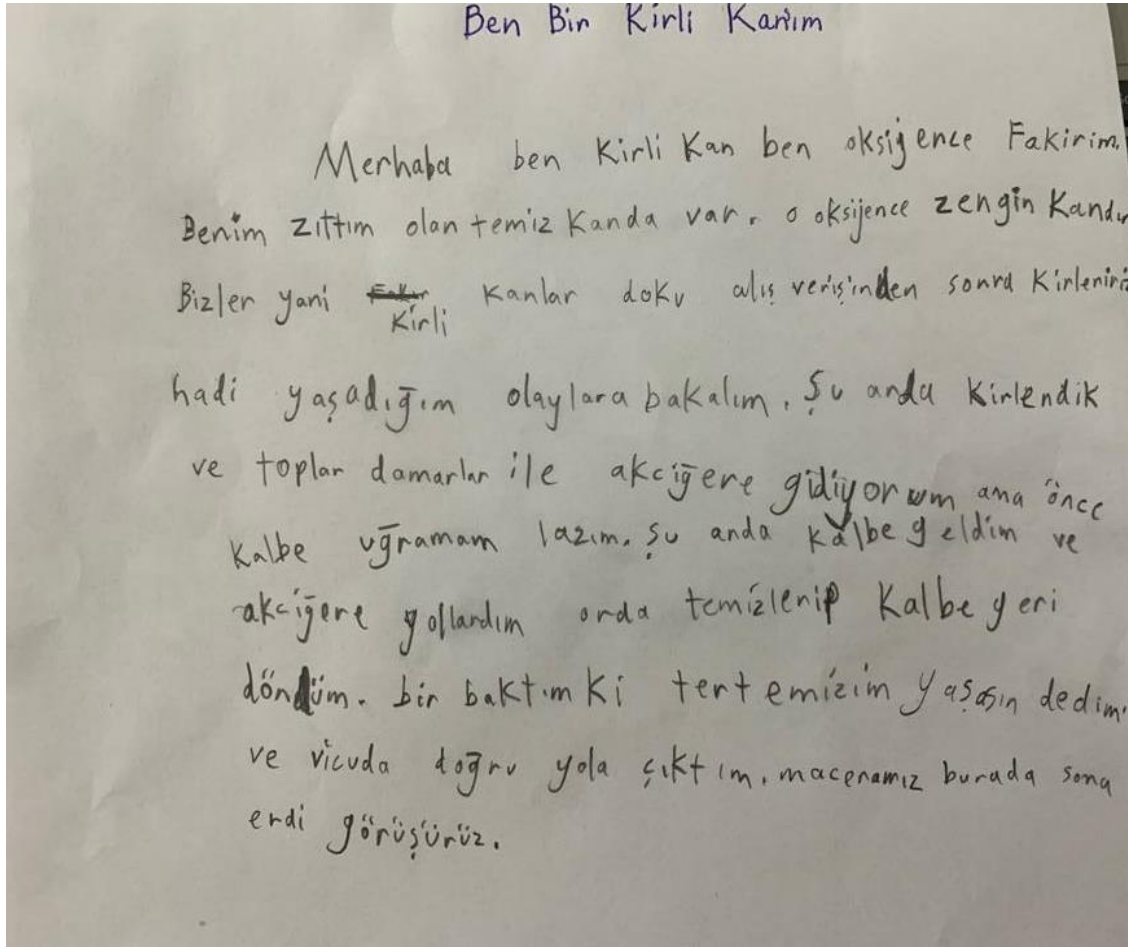 Ben Bin Kirli Kanım
Merhaba ben Kirli Kan ben oksijence Fakirim.
Benim zıttım olan temiz Kanda var. o oksijence zengin Kandır
Bizler yani Kirli Kanlar doku alış verişinden sonra Kirleniriz
hadi yaşadığım olaylara bakalım. Şu anda Kirlendik
ve toplar damarlar ile akciğere gidiyorum ama önce
Kalbe uğramam lazım. Şu anda kalbe geldim ve
akciğere yollandım orda temizlenip Kalbe geri
döndüm. bir baktım Ki tertemizim yaşasın dedim.
ve vicuda doğru yola çıktım. maceramız burada sona
erdi görüşürüz.